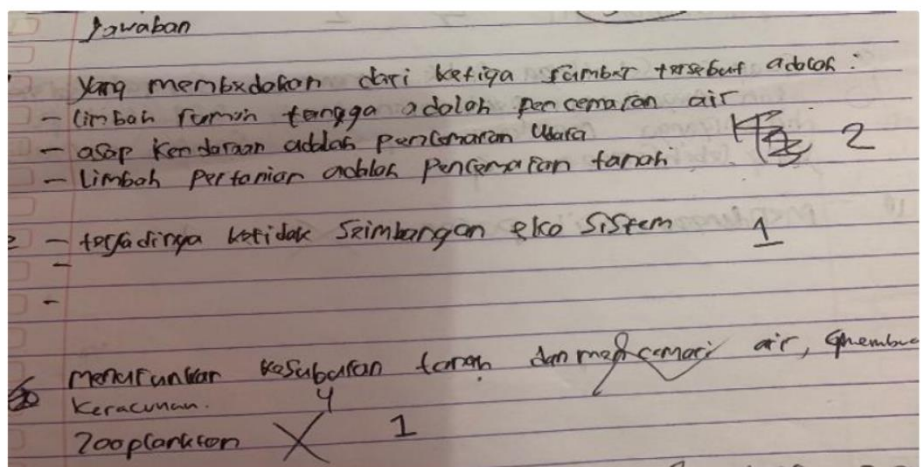 Jawaban
Yang membedakan dari ketiga sumber tersebut adalah :
- limbah rumah tangga adalah pencemaran air
- asap kendaraan adalah pencemaran udara
2
- limbah pertanian adalah pencemaran tanah
- terjadinya ketidak seimbangan eko sistem 1
-
-
menurunkan kesuburan tanah dan mencemari air,
keracunan. 4
zooplankton X 1